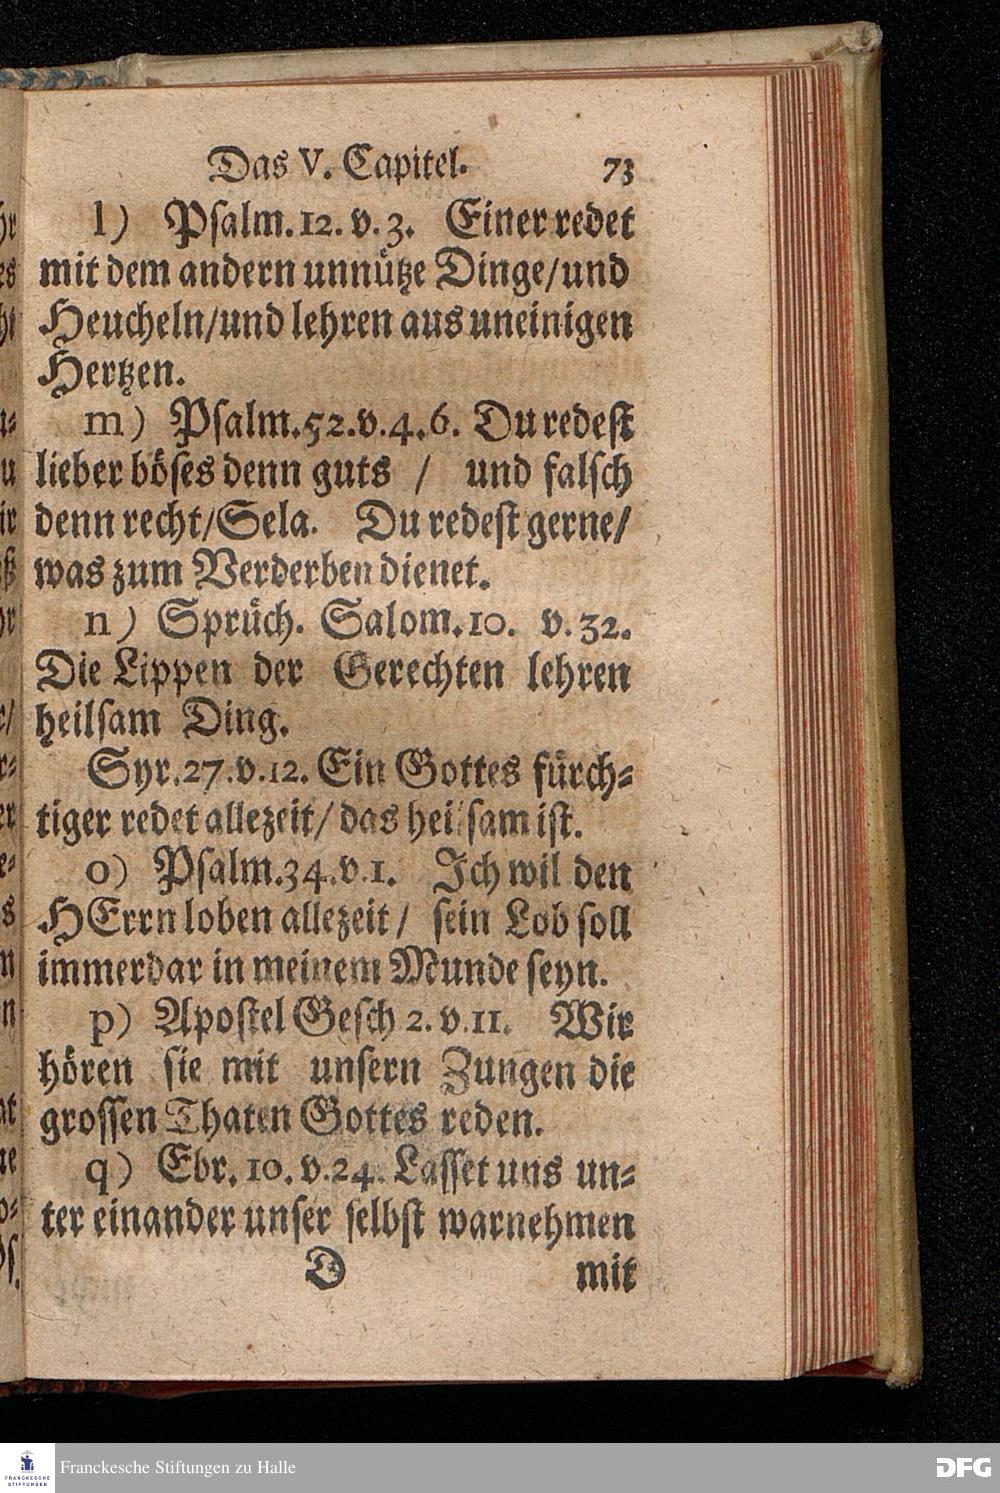 Das V. Capitel. 73
l) Psalm. 12. v. 3. Einer redet
mit dem andern unnütze Dinge/und
Heucheln/und lehren aus uneinigen
Hertzen.
m) Psalm. 52. v. 4. 6. Du redest
lieber böses denn guts / und falsch
denn recht/Sela. Du redest gerne/
was zum Verderben dienet.
n) Sprüch. Salom. 10. v. 32.
Die Lippen der Gerechten lehren
heilsam Ding.
Syr. 27. v. 12. Ein Gottes fürch-
tiger redet allezeit/ das heilsam ist.
o) Psalm. 34. v. 1. Ich wil den
HErrn loben allezeit / sein Lob soll
immerdar in meinem Munde seyn.
p) Apostel Gesch 2. v. 11. Wir
hören sie mit unsern Zungen die
grossen Thaten Gottes reden.
q) Ebr. 10. v. 24. Lasset uns un-
ter einander unser selbst warnehmen
D mit
FRANCKESCHE STIFTUNGEN
Franckesche Stiftungen zu Halle
DFG